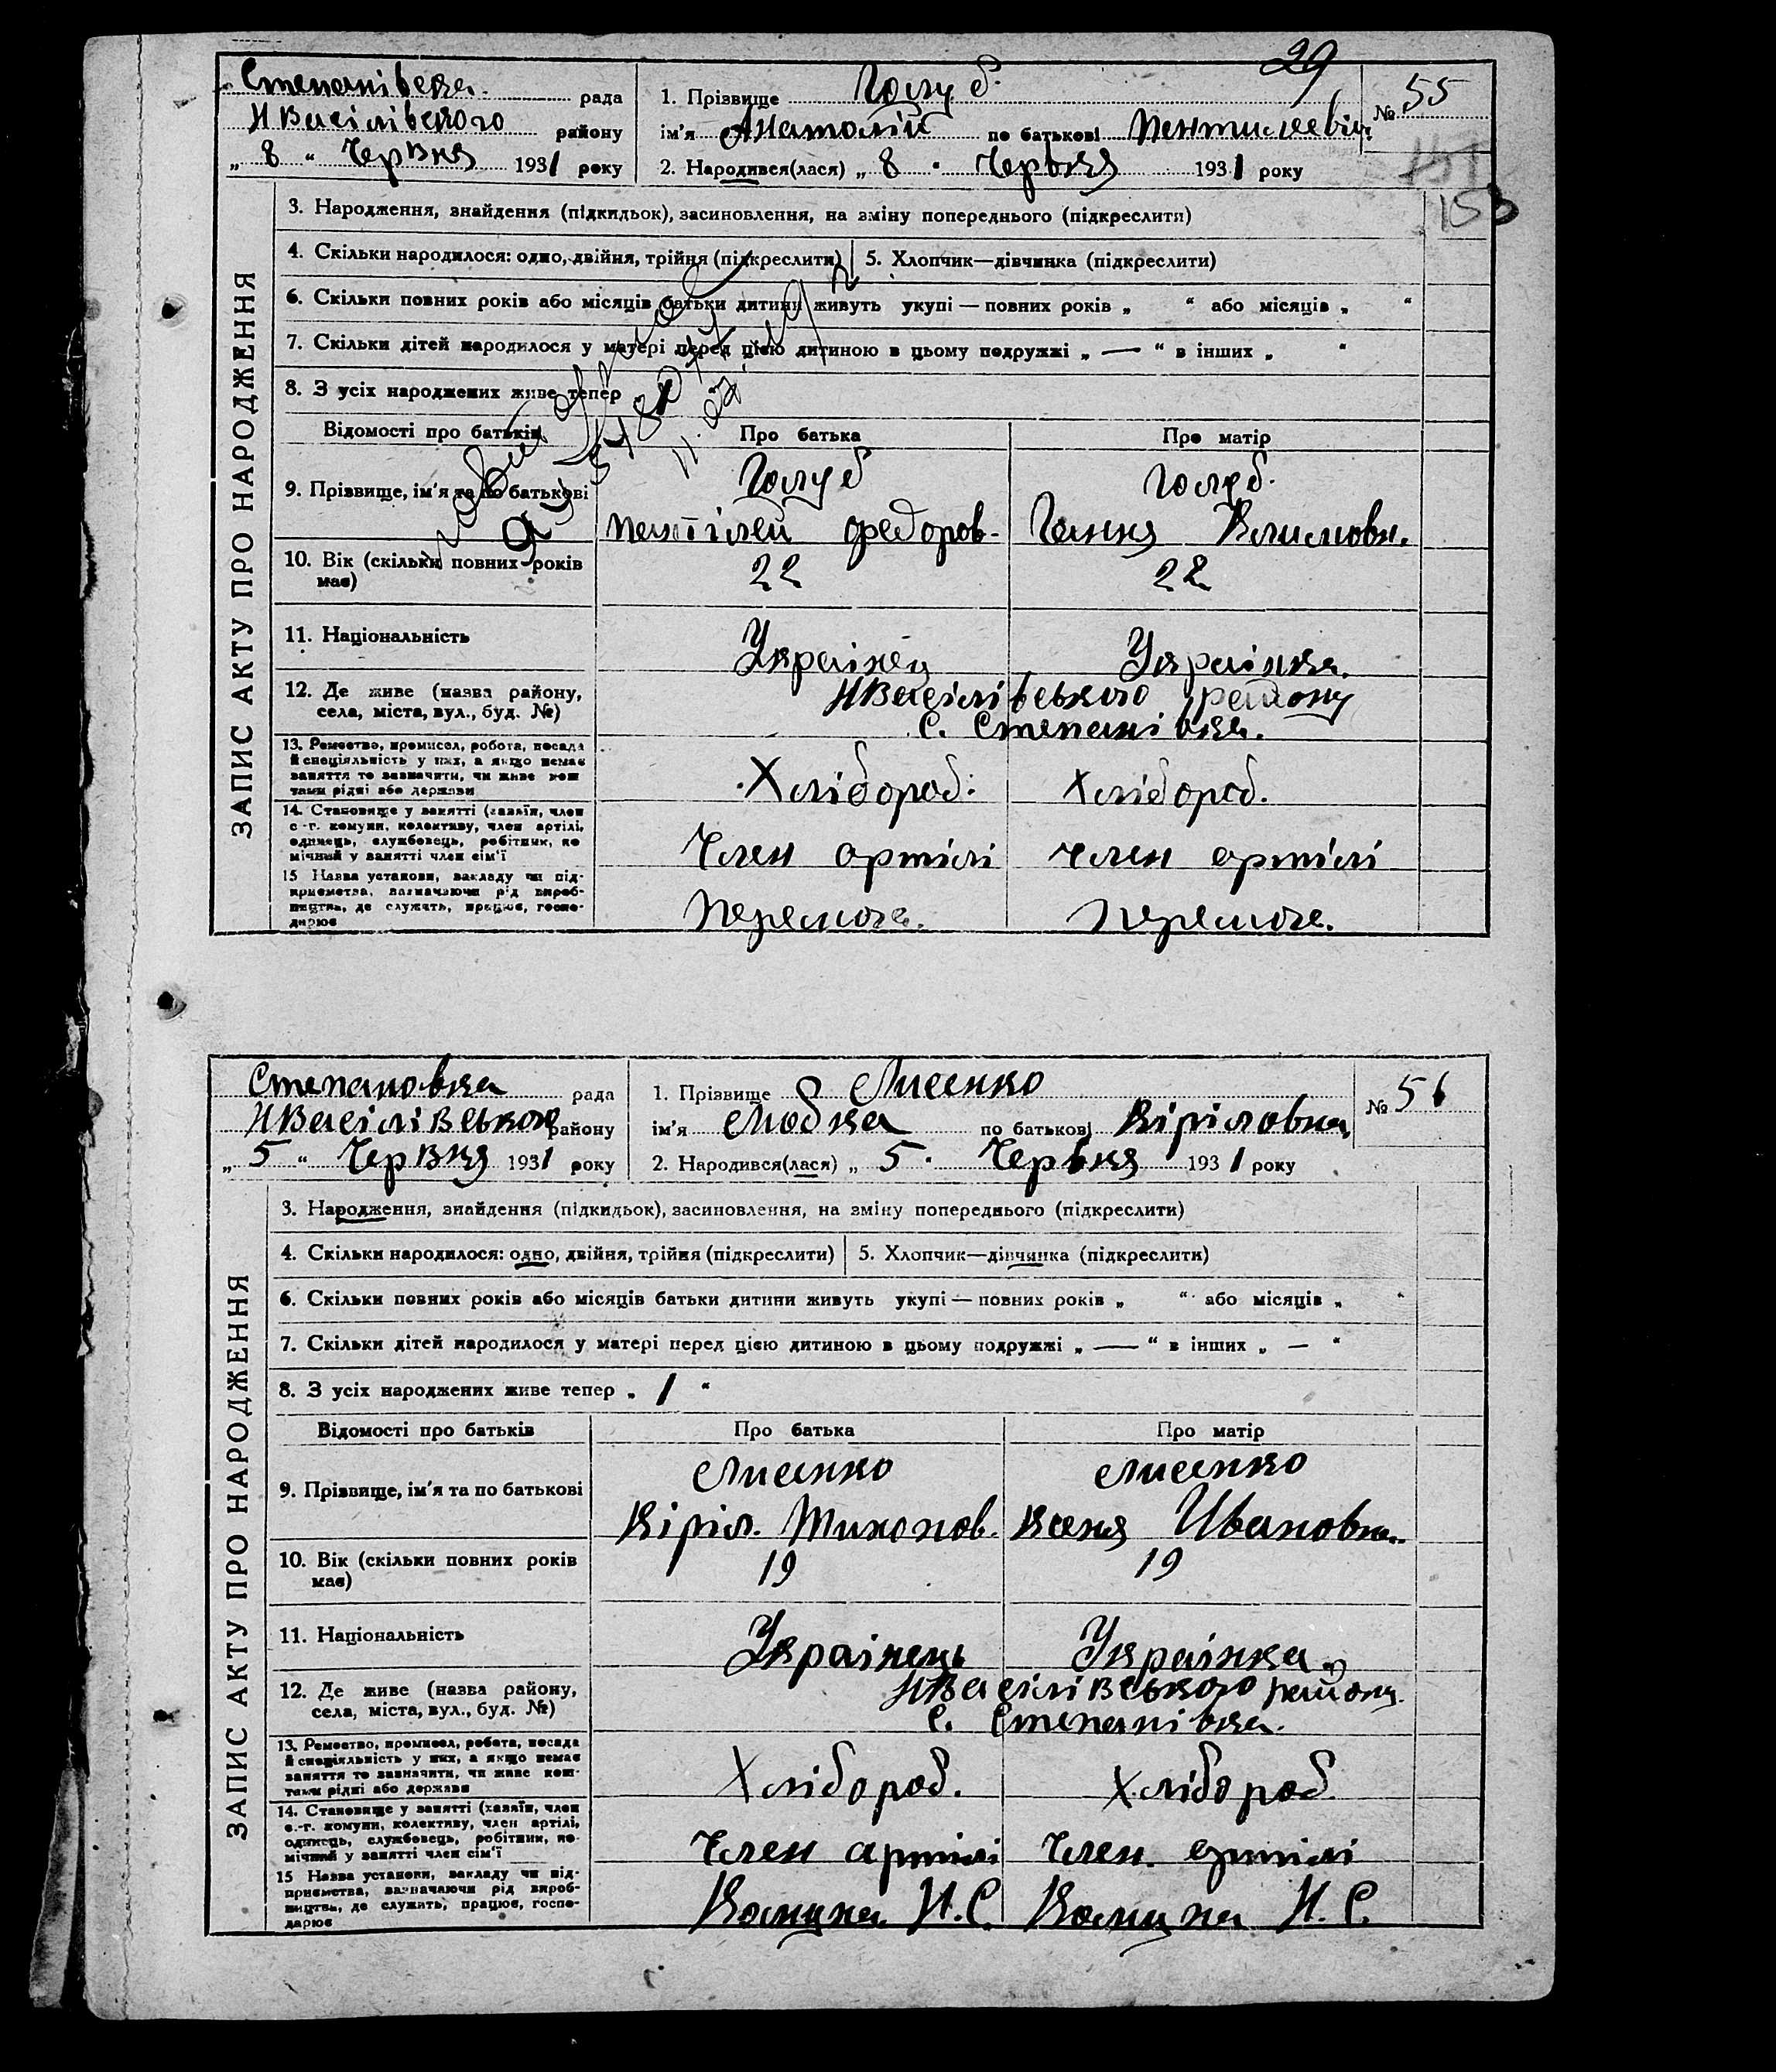 29
Степанівска рада
Н Василівского району
„ 8 “ Червня 1931 року
1. Прізвище Голуб.
ім'я Анатолій по батькові Пентилеевіч
2. Народився(лася) „ 8 “ Червня 1931 року
№ 55
153
ЗАПИС АКТУ ПРО НАРОДЖЕННЯ
3. Народження, знайдення (підкидьок), засиновлення, на зміну попереднього (підкреслити)
4. Скільки народилося: одно, двійня, трійня (підкреслити) 5. Хлопчик—дівчинка (підкреслити)
6. Скільки повних років або місяців батьки дитини живуть укупі — повних років „ “ або місяців „ “
7. Скільки дітей народилося у матері перед цією дитиною в цьому подружжі „ — “ в інших „ “
8. З усіх народжених живе тепер
Відомості про батьків Про батька Про матір
9. Прізвище, ім'я та по батькові
Голуб Голуб.
Пентілей Федоров. Гання Климовн.
10. Вік (скільки повних років має) 22 22
11. Національність Украінец Украінка.
12. Де живе (назва району, села, міста, вул., буд. №)
НВасілівського району
С. Степанівка.
13. Ремество, промисел, робота, посада й спеціяльність у них, а якщо немає заняття то зазначити, чи живе коштами рідні або держави
Хлібороб. Хлібороб.
14. Становище у занятті (хазяїн, член с.-г. комуни, колективу, член артілі, одинець, службовець, робітник, помічний у занятті член сім'ї
Член артілі Член артілі
15 Назва установи, закладу чи підприємства, зазначаючи рід виробництва, де служить, працює, господарює
Перемога. Перемога.
Степановка рада
НВасілівського району
„ 5 “ Червня 1931 року
1. Прізвище Лисенко
ім'я Любка по батькові Кіріловна
2. Народився(лася) „ 5 “ Червня 1931 року
№ 56
ЗАПИС АКТУ ПРО НАРОДЖЕННЯ
3. Народження, знайдення (підкидьок), засиновлення, на зміну попереднього (підкреслити)
4. Скільки народилося: одно, двійня, трійня (підкреслити) 5. Хлопчик—дівчинка (підкреслити)
6. Скільки повних років або місяців батьки дитини живуть укупі — повних років „ “ або місяців „ “
7. Скільки дітей народилося у матері перед цією дитиною в цьому подружжі „ — “ в інших „ — “
8. З усіх народжених живе тепер „ 1 “
Відомості про батьків Про батька Про матір
9. Прізвище, ім'я та по батькові
Лисенко Лисенко
Кіріл. Тихонов. Ивановна.
10. Вік (скільки повних років має) 19 19
11. Національність Украінець Украінка.
12. Де живе (назва району, села, міста, вул., буд. №)
НВасілівського району
С. Степанівка.
13. Ремество, промисел, робота, посада й спеціяльність у них, а якщо немає заняття то зазначити, чи живе коштами рідні або держави
Хлібороб. Хлібороб.
14. Становище у занятті (хазяїн, член с.-г. комуни, колективу, член артілі, одинець, службовець, робітник, помічний у занятті член сім'ї
Член артілі Член. артілі
15 Назва установи, закладу чи підприємства, зазначаючи рід виробництва, де служить, працює, господарює
Н.С. Н.С.